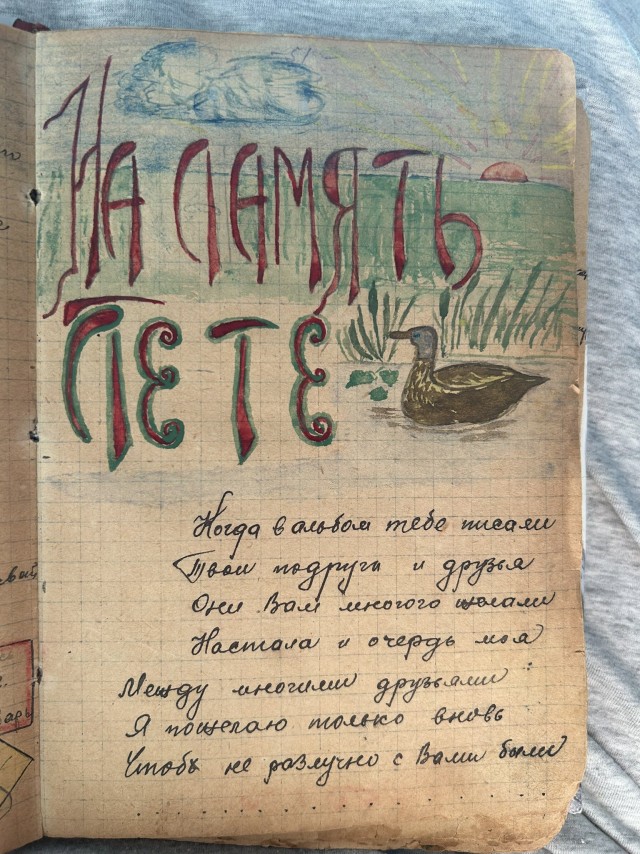 На память
Пете
Когда в альбом тебе писали
Твои подруги и друзья
Они Вам многого желали
Настала и очердь моя
Между многими друзьями
Я пожелаю только вновь
Чтобы не разлучно с Вами были
. . . . . . . . . . . . . . .